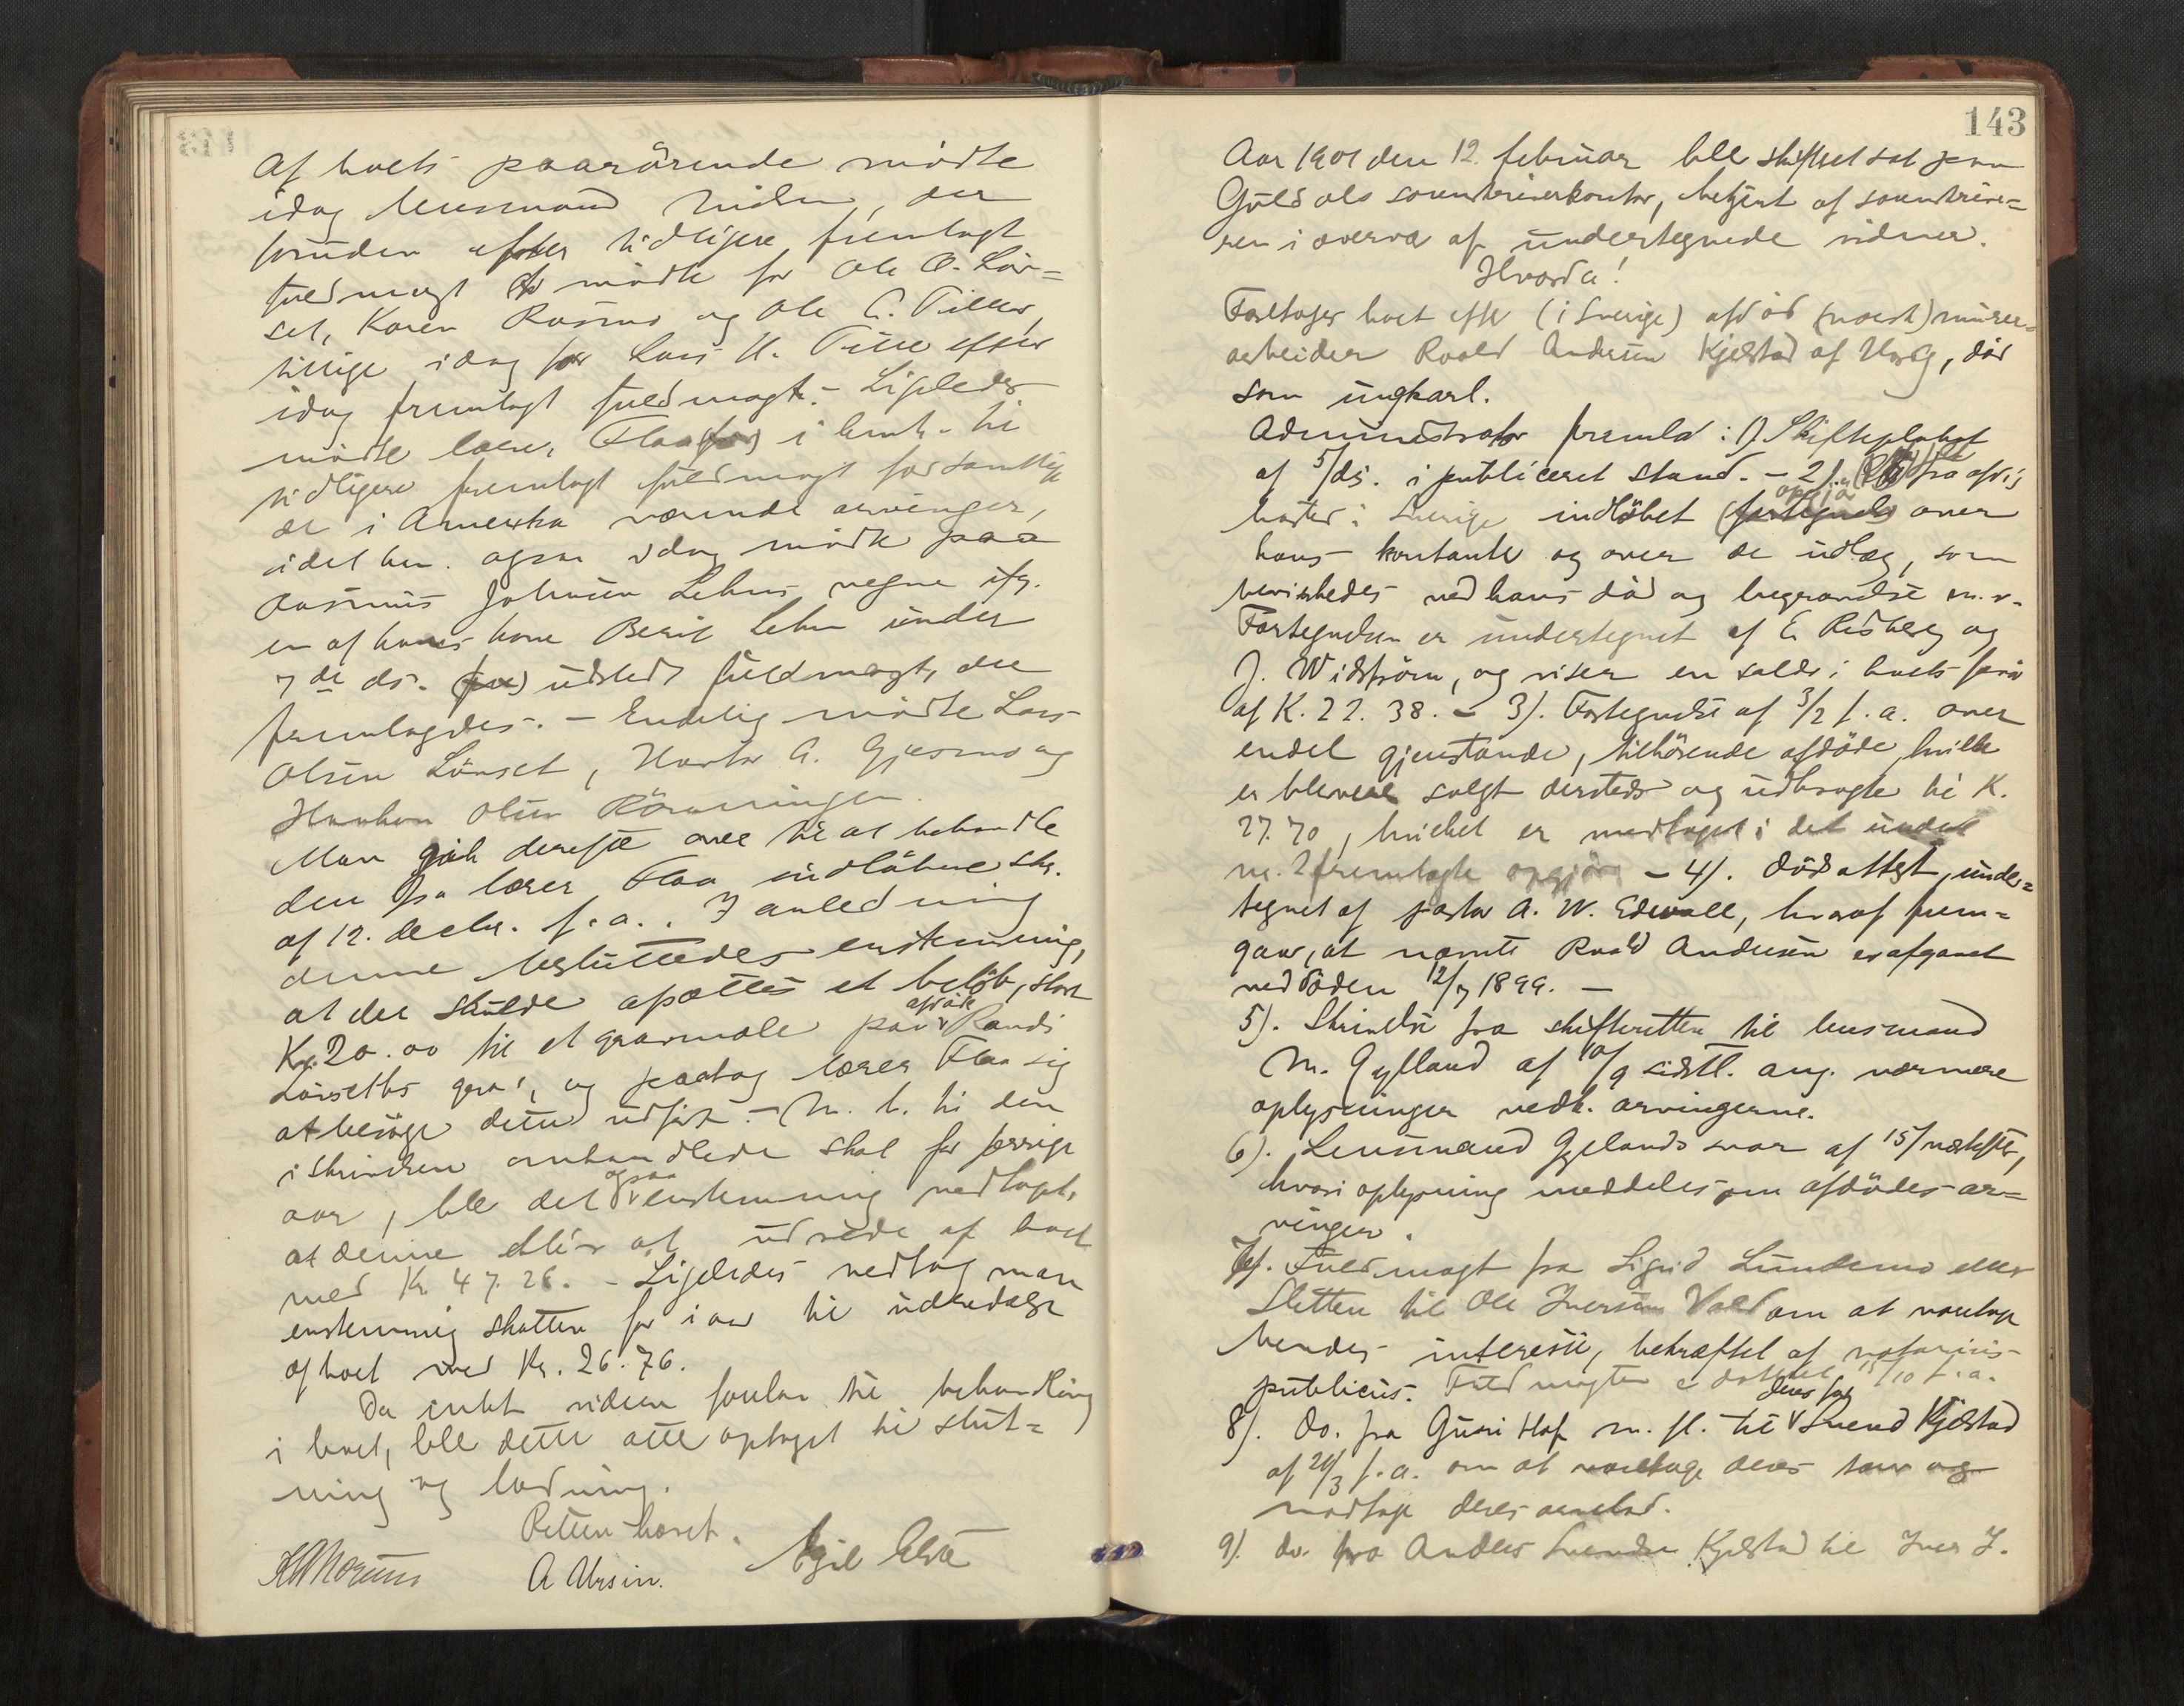 Af boets paarørende mødte
idag lensmand Midlie, der
foruden efter tidligere fremlagt
fuldmagt at mødte for Ole O. Løn=
set, Karen Rasmo og Ole C. Tiller,
tillige idag for Lars H. Tille efter
idag fremlagt fuldmagt. - Ligeledes
mødte lærer Flaa (for) i henh. til
tidligere fremlagt fuldmagt for samtlige
de i Amerika værende arvinger,
idet han ogsaa idag mødte paa
Rasmus Johnsen Lehns vegne ifg.
en af hans kone Berit Lehn under
7de ds. (fre) udstedt fuldmagt, der
fremlagdes. - Endelig mødte Lars
Olsen Lønset, Halvor A. Gjersmo og
Haakon Olsen Rönningen.
Man gik derefter over til at behandle
den fra lærer Flaa indløbne skr.
af 12. decbr. f. a. I anledning
denne besluttedes enstemmig,
at der skulde afsættes et beløb, stort
Kr. 20.00 til et gravmæle paa afdøde Randi
Lønseths grav, og paatog lærer Flaa sig
at besørge dette udført. - M. h. til den
i skrivelsen omhandlede skat for forrige
aar, ble det ogsaa enstemmig vedtaget,
at denne blir at udrede af boet
med Kr. 47.26. - Ligeledes vedtog man
enstemmig skatten for i aar til udredelse
af boet med Kr. 26.76.
Da intet videre forelaa til behandling
i boet, ble dette atter optaget til slut=
ning og lodning.
Retten hævet.
A Ursin. Egil Elde
143
Aar 1901 den 12. februar ble skifteret sat paa
Guldals sorenskriverkontor, betjent af sorenskrive=
ren i overvær af undertegnede vidner.
Hvorda!
Foretages boet efter (i Sverige) afdød (norsk) murer=
arbeider Roald Andersen Kjelstad af Horg, død
som ungkarl.
Administrator fremla: 1). Skifteplakat
af 5/ ds. i publiceret stand. - 2). fra
i Sverige indløbet (fortegnelse) opgjør over
hans kontante og over de udlæg, som
bevirkedes ved hans død og begravelse m. v.
Fortegnelsen er undertegnet af E. Risberg og
J. Widström, og viser en saldo i boets favør
af K. 22.38. - 3). Fortegnelse af 3/2 f. a. over
endel gjenstande, tilhørende afdøde, hvilke
er blevne solgt dersteds og udbragte til K.
27.70, hvilket er medtaget i det under
nr. 2 fremlagte opgjør. - 4). Dødsattest, under=
tegnet af pastor A. W. Edwall, hvoraf frem=
gaar, at nævnte Roald Andersen er afgaaet
ved døden 12/7 1899. -
5). Skrivelse fra skifteretten til lensmand
M. Gylland af 10/9 sidstl. ang. nærmere
oplysninger vedk. arvingerne.
6). Lensmand Gyllands svar af 15/ næstefter,
hvori oplysning meddeles om afdødes ar=
vinger.
7). Fuldmagt fra Sigrid Lundemo eller
Sletten til Ole Iversen Vold om at varetage
hendes interesse, bekræftet af notarius
publicus. Fuldmagten er dateret 15/10 f. a.
8). do. fra Guri Hof m. fl. til deres far Svend Kjelstad
af 20/3 f. a. om at varetage deres tarv og
modtage deres arvelod.
9). do. fra Anders Svendsen Kjelstad til Iver I.